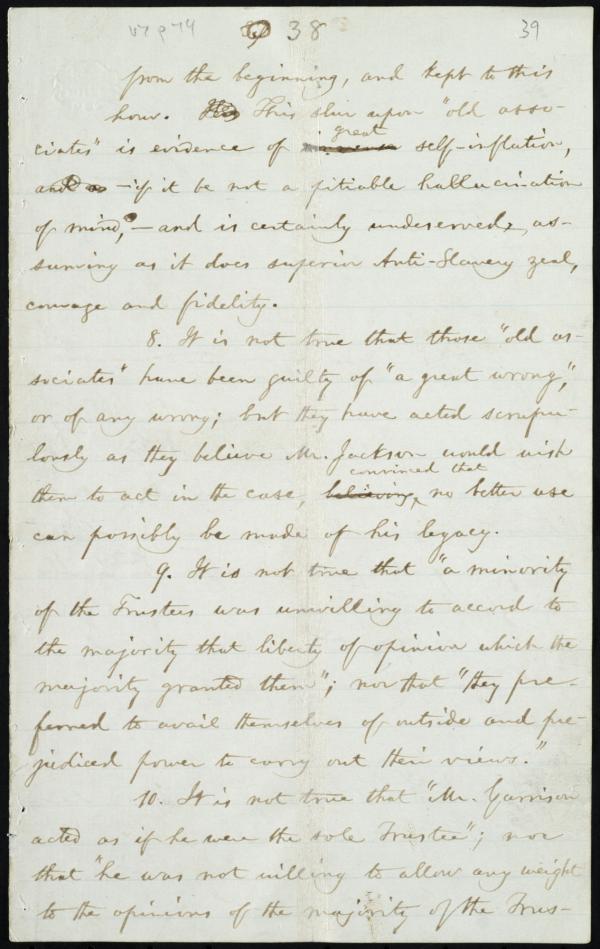 v7 p74 38 39
from the beginning, and kept to this
hour. This slur upon "old asso-
great
ciates" is evidence of self-inflation,
and —if it be not a pitiable hallucination
of mind,—and is certainly undeserved, as-
suming as it does superior Anti-Slavery zeal,
courage and fidelity.
8. It is not true that those "old as-
sociates" have been guilty of "a great wrong,"
or of any wrong; but they have acted scrupu-
lously as they believe Mr. Jackson would wish
convinced that
them to act in the case, believing, no better use
can possibly be made of his legacy.
9. It is not true that "a minority
of the Trustees was unwilling to accord to
the majority that liberty of opinion which the
majority granted them"; nor that "they pre-
ferred to avail themselves of outside and pre-
judiced power to carry out their views."
10. It is not true that "Mr. Garrison
acted as if he were the sole Trustee"; nor
that "he was not willing to allow any weight
to the opinions of the majority of the Trus-